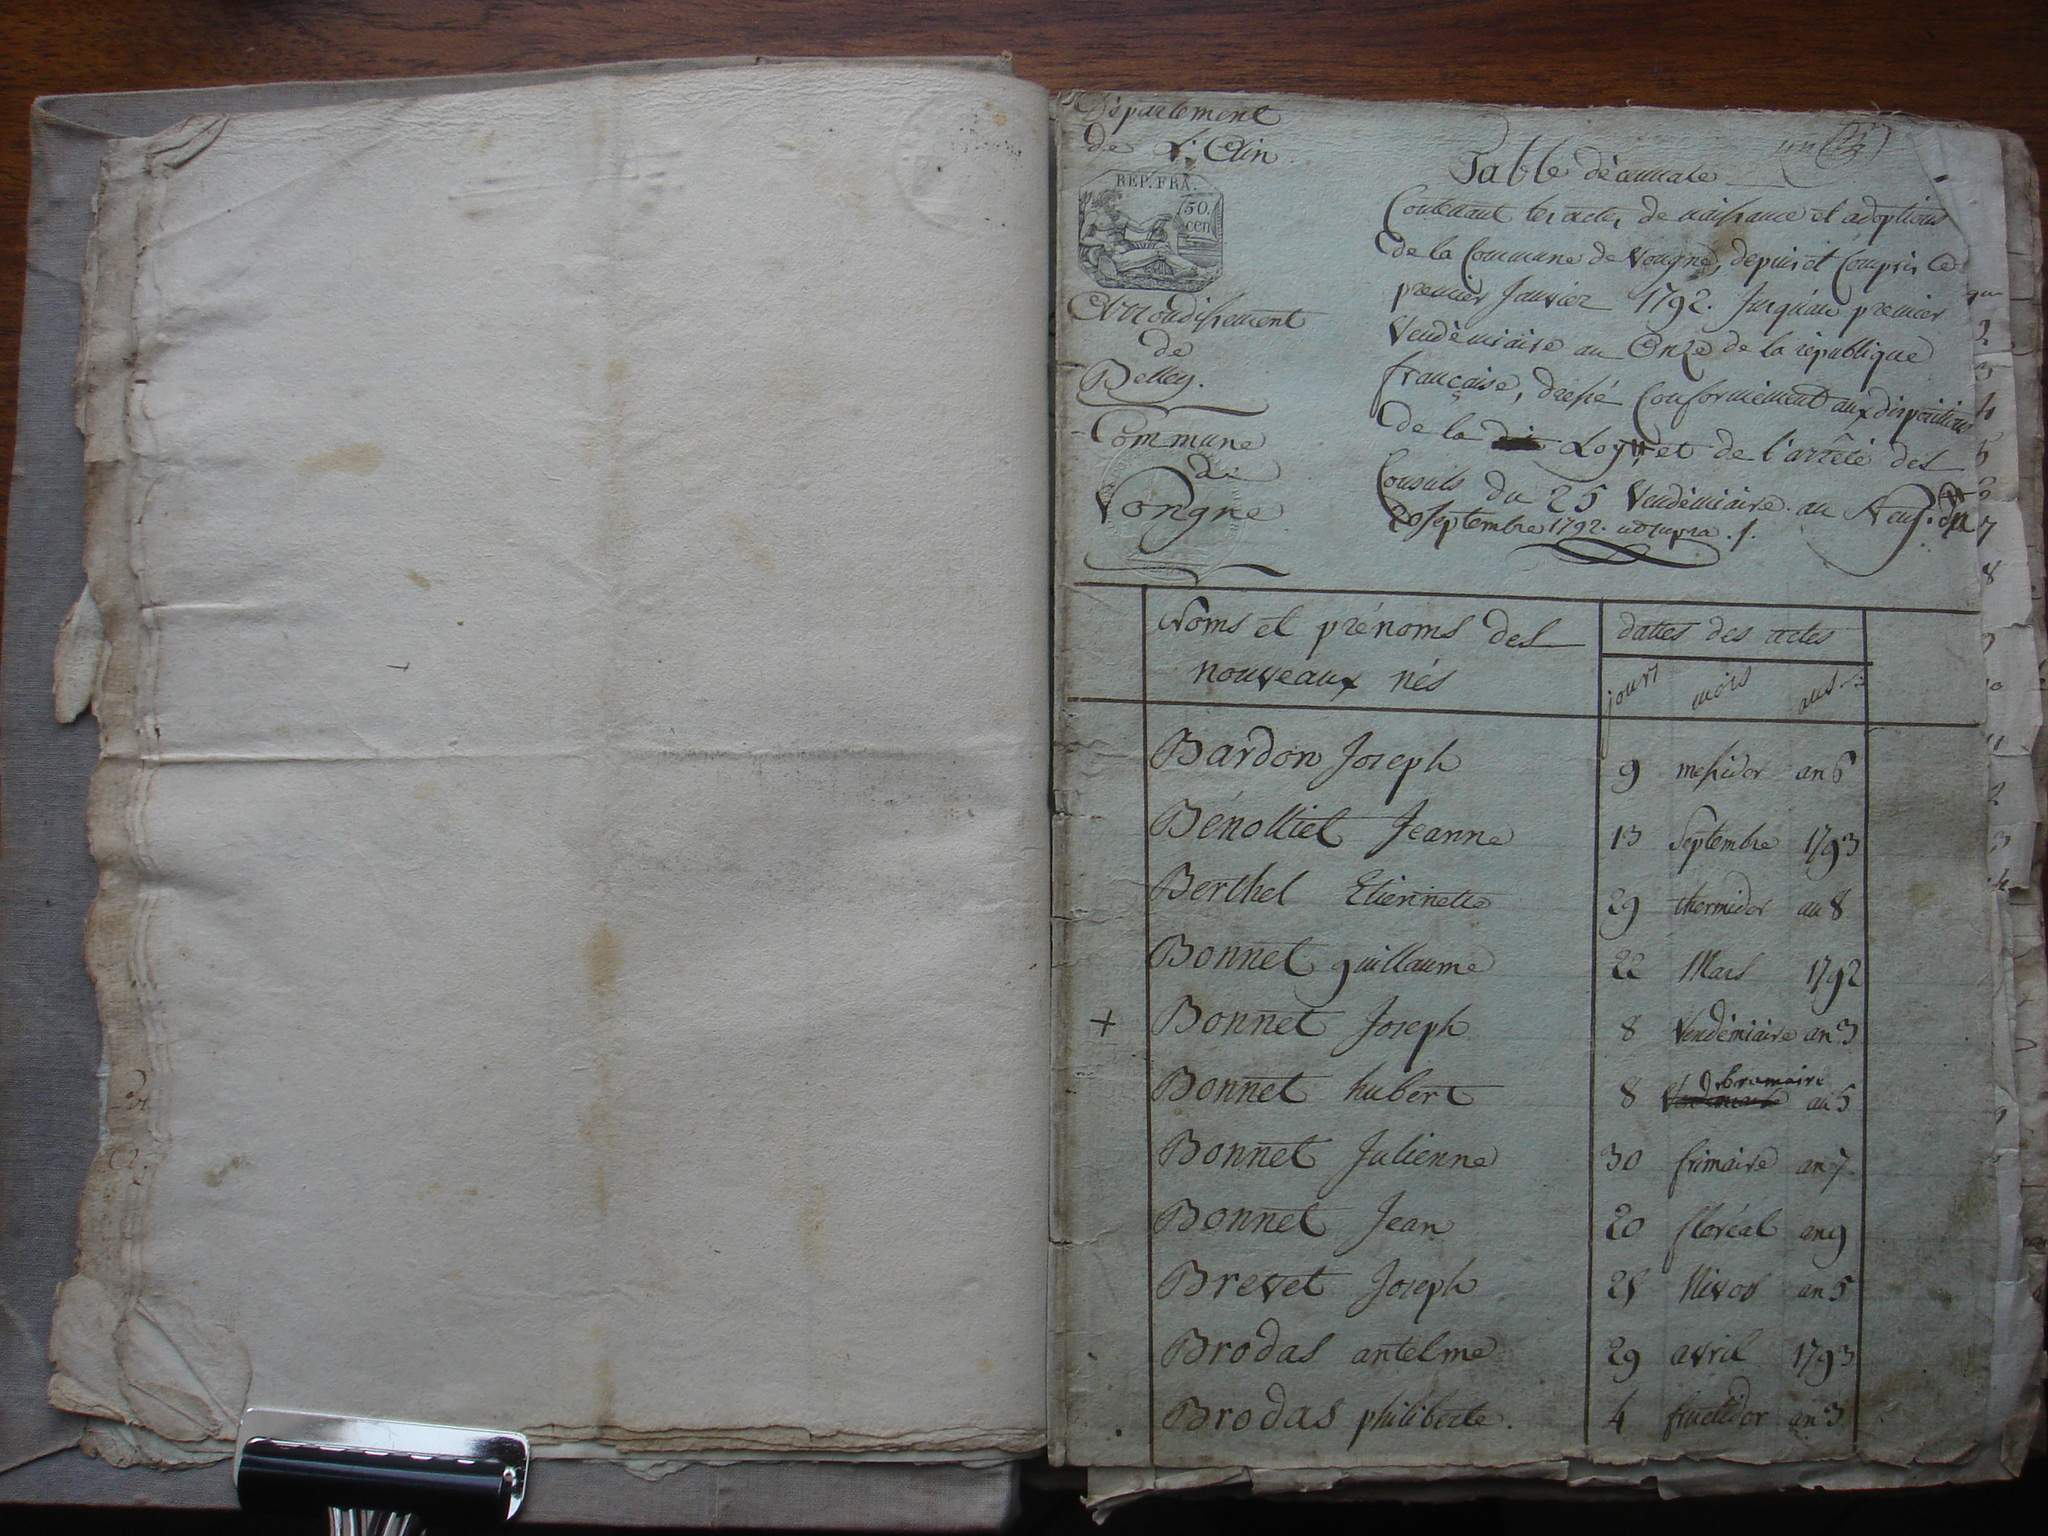 Département
de L'Ain
REP. FRA.
50.
cen
Arrondissement
de
Belley.
Commune
de
Vongne
un
Table décennale
Contenant les actes de naissance et adoptions
de la Commune de Vongne, depuis et Compris le
premier Janvier 1792. Jusqu'au premier
Vendémiaire an Onze de la république
française, dressé Conformément aux dispositions
de la Loy et de l'arrêté des
Consuls du 25 Vendémiaire an Neuf. du
20 septembre 1792. ut supra
Noms et prénoms des
nouveaux nés
dattes des actes
jours mois ans
Bardon Joseph 9 messidor an 6
Bénottiet Jeanne 13 Septembre 1793
Berthet Etiennette 29 thermidor an 8
Bonnet guillaume 22 Mars 1792
+ Bonnet Joseph 8 Vendémiaire an 3
brumaire
Bonnet hubert 8 Vendémiaire an 5
Bonnet Julienne 30 frimaire an 7
Bonnet Jean 20 floréal an 9
Brevet Joseph 28 Nivos an 5
Brodas antelme 29 avril 1793
Brodas philiberte. 4 fructidor an 3